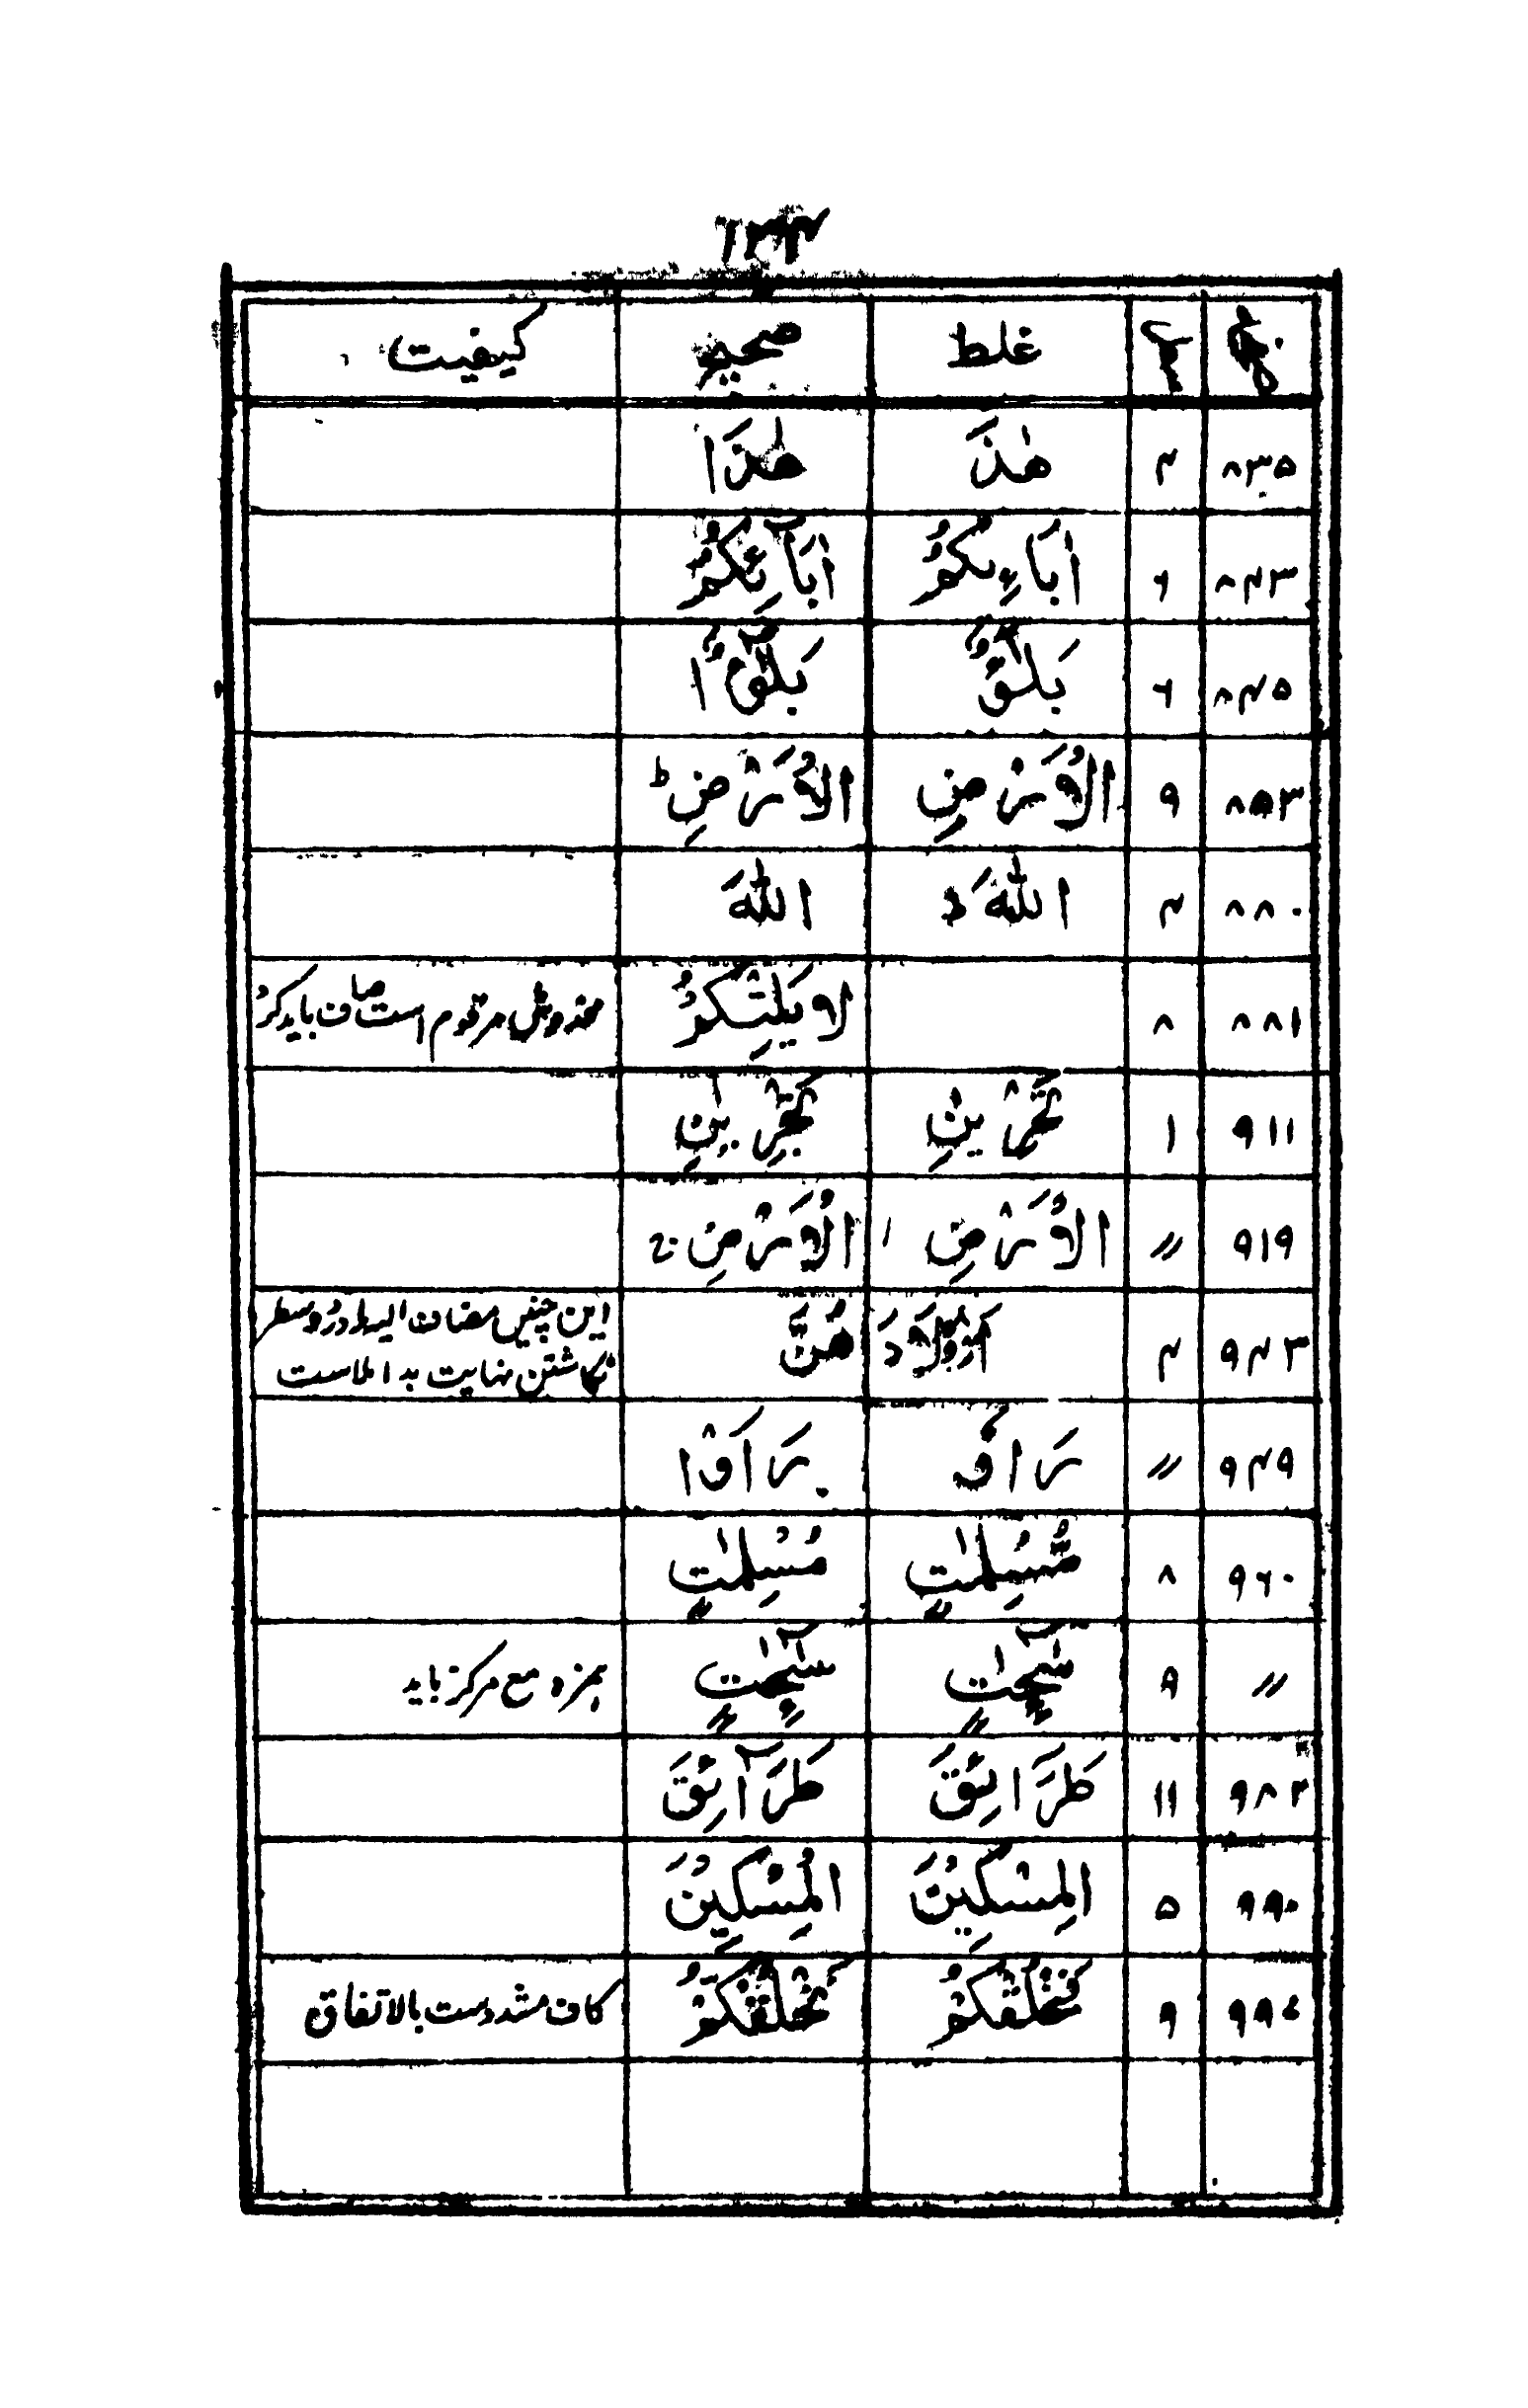 ۱۳۴
صفحہ سطر غلط صحیح کیفیت
۸۳۵ ۴ هٰذَ هٰذَا
۸۴۳ ۶ اٰبَاءِىكُمُ اٰبَآئِكُمُ
۸۴۵ ۶ بَلٰٓؤٌ بَلٰٓؤٌا
۸۵۳ ۹ الْاَرْضِ الْاَرْضِ ط
۸۸۰ ۴ اللّٰهَ ط اللّٰهَ
۸۸۱ ۸ لَا يَلِتْكُمْ مخدوش مرقوم است صاف باید کرد
۹۱۱ ۱ تَجْرٰينِ تَجْرِيٰنِ
۹۱۹ // الْاَرْضِ الْاَرْضِ ج
۹۴۳ ۴ اَوْلَادَ هُنَّ این چنین مضاف الیه را در دو سطر
نگاشتن نهایت بد املاست
۹۴۹ // رَاَوْ رَاَوْا
۹۶۰ ۸ مُّسْلِمٰتٍ مُسْلِمٰتٍ
// ۹ سٰٓئِحٰتٍ سٰٓئِحٰتٍ همزه مع مرکز باید
۹۸۲ ۱۱ طَرَائِقَ طَرَآئِقَ
۹۹۰ ۵ الِمسْكِيْنَ الْمِسْكِيْنَ
۹۹۴ ۹ نَخْلُقْكُمْ نَخْلُقْكُّمْ کاف مشدد ست بالاتفاق